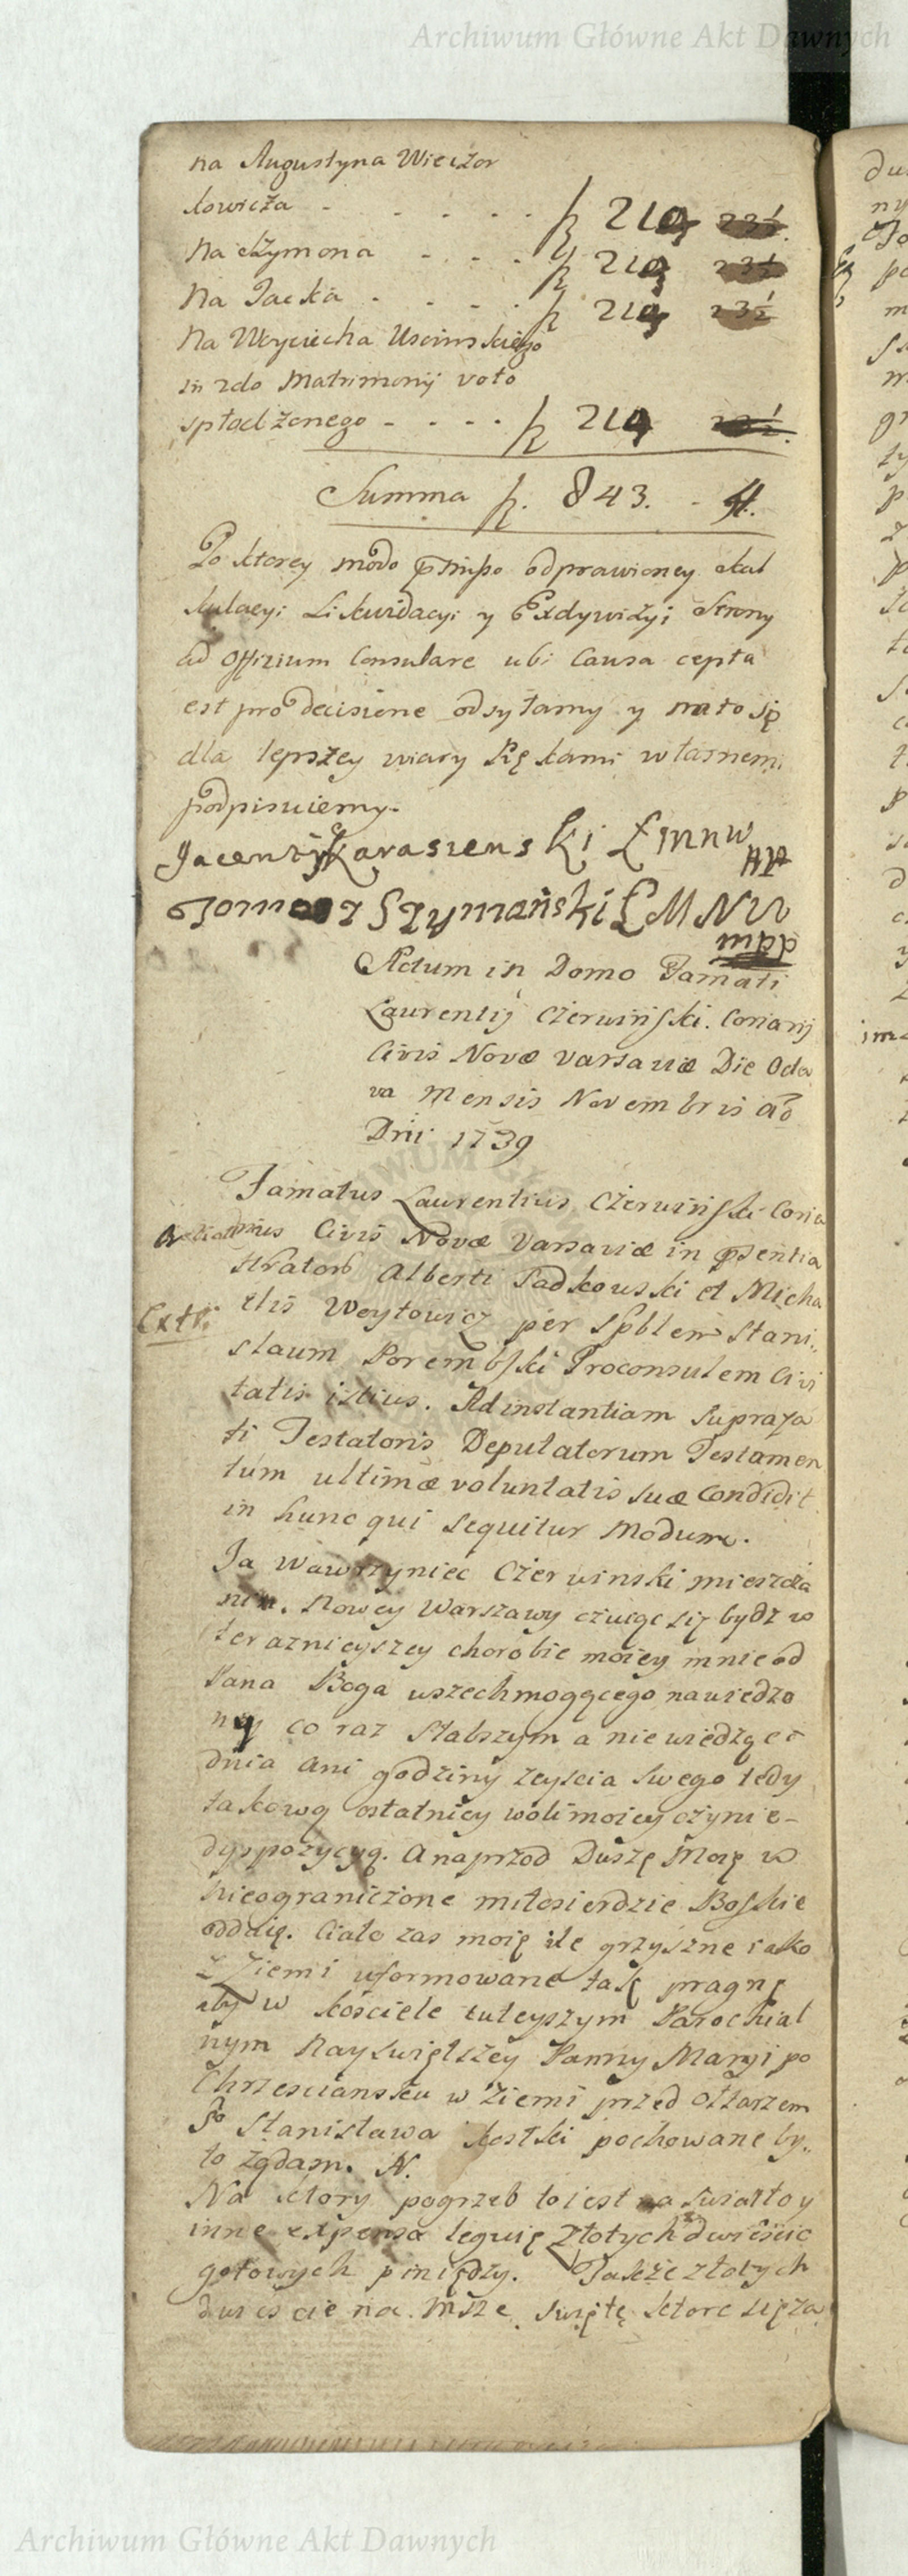 Archiwum Główne Akt Dawnych
na Augustyna Wieczor
kowicza - - - - - 210
na Szymona - - - 210
na Jacka - - - - 210
na Woyciecha Uscinskiego
in 2do Matrimonij voto
spłodzonego - - - - 210
Summa 843. - 4.
Po ktorey modo odprawioney kal
kulacyi Likwidacyi y Exdywizyi Strony
ad Officium Consulare ubi Causa cepta
est pro decisione odsyłamy y na to się
dla lepszey wiary Rękami własnemi
podpisuiemy.
Jacenty Karasienski ŁMNW
Tomasz Szymański ŁMNW
mpp
Actum in Domo Famati
Laurentij Czerwiński. Coriarij
Civis Novæ Varsaviæ Die Octa
va Mensis Novembris Ao
Dni 1739
Famatus Laurentius Czerwiński Coria
rius Civis Novæ Varsaviæ in psentia
Alberti Sadkowski et Micha
elis Weytowicz per Spblem Stani
slaum Porembski Proconsulem Civi
tatis istius. Ad instantiam supraza
ti Testatoris Deputatorum Testamen
tum ultimæ voluntatis suæ Condidit
in hunc qui sequitur modum.
Extr.
Ja Wawrzyniec Czerwinski mieszcza
nin. Nowey Warszawy czuiąc się bydz w
teraznieyszey chorobie moiey mnie od
Pana Boga wszechmogącego nawiedzo
ny co raz słabszym a niewiedząc
dnia ani godziny zeyscia swego tedy
takową ostatniey woli moiey czynie-
dyspozycyą. A naprzod Duszę Moię w
nieograniczone miłosierdzie Boskie
oddaię. Ciało zas moię ile grzyszne iako
z Ziemi uformowane tak pragnę
aby w kosciele tuteyszym Parochial
nym Nayswiętszey Panny Maryi po
Chrzesciansku w Ziemi przed Ołtarzem
So Stanisława Kostki pochowane by
ło żądam. N.
Na ktory pogrzeb to iest na swiatło y
inne expensa leguię Złotych dwiescie
gotowych piniędzy. Takze złotych
dwiescie na Msze swięte ktore się za
Archiwum Główne Akt Dawnych